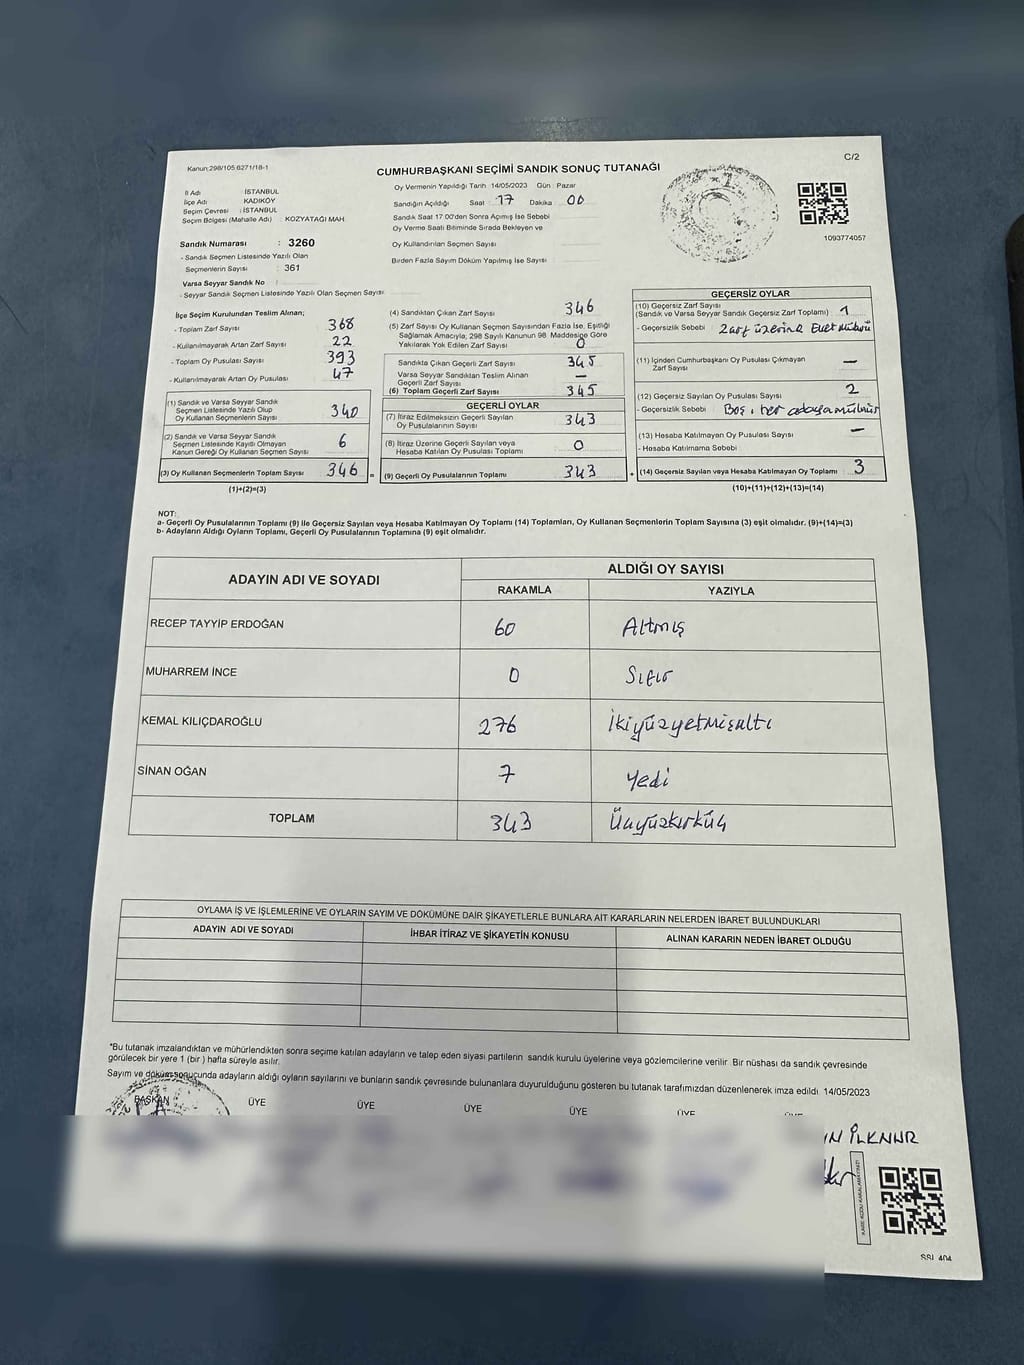 Kanun:298/105 6271/18-1
C/2
CUMHURBAŞKANI SEÇİMİ SANDIK SONUÇ TUTANAĞI
İl Adı : İSTANBUL
İlçe Adı : KADIKÖY
Seçim Çevresi : İSTANBUL
Seçim Bölgesi (Mahalle Adı) : KOZYATAĞI MAH.
Sandık Numarası : 3260
- Sandık Seçmen Listesinde Yazılı Olan
Seçmenlerin Sayısı : 361
Varsa Seyyar Sandık No :
- Seyyar Sandık Seçmen Listesinde Yazılı Olan Seçmen Sayısı:
Oy Vermenin Yapıldığı Tarih :14/05/2023 Gün : Pazar
Sandığın Açıldığı Saat : 17 Dakika : 00
Sandık Saat 17:00'den Sonra Açımış İse Sebebi
Oy Verme Saati Bitiminde Sırada Bekleyen ve
Oy Kullandırılan Seçmen Sayısı :
Birden Fazla Sayım Döküm Yapılmış İse Sayısı :
1093774057
İlçe Seçim Kurulundan Teslim Alınan;
- Toplam Zarf Sayısı : 368
- Kullanılmayarak Artan Zarf Sayısı : 22
- Toplam Oy Pusulası Sayısı : 393
- Kullanılmayarak Artan Oy Pusulası : 47
(1) Sandık ve Varsa Seyyar Sandık
Seçmen Listesinde Yazılı Olup
Oy Kullanan Seçmenlerin Sayısı : 340
(2) Sandık ve Varsa Seyyar Sandık
Seçmen Listesinde Kayıtlı Olmayan
Kanun Gereği Oy Kullanan Seçmen Sayısı : 6
(3) Oy Kullanan Seçmenlerin Toplam Sayısı : 346 =
(1)+(2)=(3)
(4) Sandıktan Çıkan Zarf Sayısı : 346
(5) Zarf Sayısı Oy Kullanan Seçmen Sayısından Fazla İse, Eşitliği
Sağlamak Amacıyla, 298 Sayılı Kanunun 98. Maddesine Göre
Yakılarak Yok Edilen Zarf Sayısı : 0
Sandıkta Çıkan Geçerli Zarf Sayısı : 345
Varsa Seyyar Sandıktan Teslim Alınan
Geçerli Zarf Sayısı : —
(6) Toplam Geçerli Zarf Sayısı : 345
GEÇERLİ OYLAR
(7) İtiraz Edilmeksizin Geçerli Sayılan
Oy Pusulasının Sayısı : 343
(8) İtiraz Üzerine Geçerli Sayılan veya
Hesaba Katılan Oy Pusulası Toplamı : 0
(9) Geçerli Oy Pusulalarının Toplamı : 343 +
GEÇERSİZ OYLAR
(10) Geçersiz Zarf Sayısı
(Sandık ve Varsa Seyyar Sandık Geçersiz Zarf Toplamı) : 1
- Geçersizlik Sebebi : Zarf üzerine Evet mührü
(11) İçinden Cumhurbaşkanı Oy Pusulası Çıkmayan
Zarf Sayısı : —
(12) Geçersiz Sayılan Oy Pusulası Sayısı : 2
- Geçersizlik Sebebi : Boş, her adaya mühür
(13) Hesaba Katılmayan Oy Pusulası Sayısı : —
- Hesaba Katılmama Sebebi :
(14) Geçersiz Sayılan veya Hesaba Katılmayan Oy Toplamı : 3
(10)+(11)+(12)+(13)=(14)
NOT:
a- Geçerli Oy Pusulalarının Toplamı (9) ile Geçersiz Sayılan veya Hesaba Katılmayan Oy Toplamı (14) Toplamları, Oy Kullanan Seçmenlerin Toplam Sayısına (3) eşit olmalıdır. (9)+(14)=(3)
b- Adayların Aldığı Oyların Toplamı, Geçerli Oy Pusulalarının Toplamına (9) eşit olmalıdır.
ADAYIN ADI VE SOYADI ALDIĞI OY SAYISI
RAKAMLA YAZIYLA
RECEP TAYYİP ERDOĞAN 60 Altmış
MUHARREM İNCE 0 Sıfır
KEMAL KILIÇDAROĞLU 276 İkiyüzyetmişaltı
SİNAN OĞAN 7 Yedi
TOPLAM 343 Üçyüzkırküç
OYLAMA İŞ VE İŞLEMLERİNE VE OYLARIN SAYIM VE DÖKÜMÜNE DAİR ŞİKAYETLERLE BUNLARA AİT KARARLARIN NELERDEN İBARET BULUNDUKLARI
ADAYIN ADI VE SOYADI İHBAR İTİRAZ VE ŞİKAYETİN KONUSU ALINAN KARARIN NEDEN İBARET OLDUĞU
*Bu tutanak imzalandıktan ve mühürlendikten sonra seçime katılan adayların ve talep eden siyasi partilerin sandık kurulu üyelerine veya gözlemcilerine verilir. Bir nüshası da sandık çevresinde
görülecek bir yere 1 (bir) hafta süreyle asılır.
Sayım ve döküm sonucunda adayların aldığı oyların sayılarını ve bunların sandık çevresinde bulunanlara duyurulduğunu gösteren bu tutanak tarafımızdan düzenlenerek imza edildi. 14/05/2023
BAŞKAN ÜYE ÜYE ÜYE ÜYE ÜYE
İLKNUR
KARE KODU KARALAMAYINIZ!